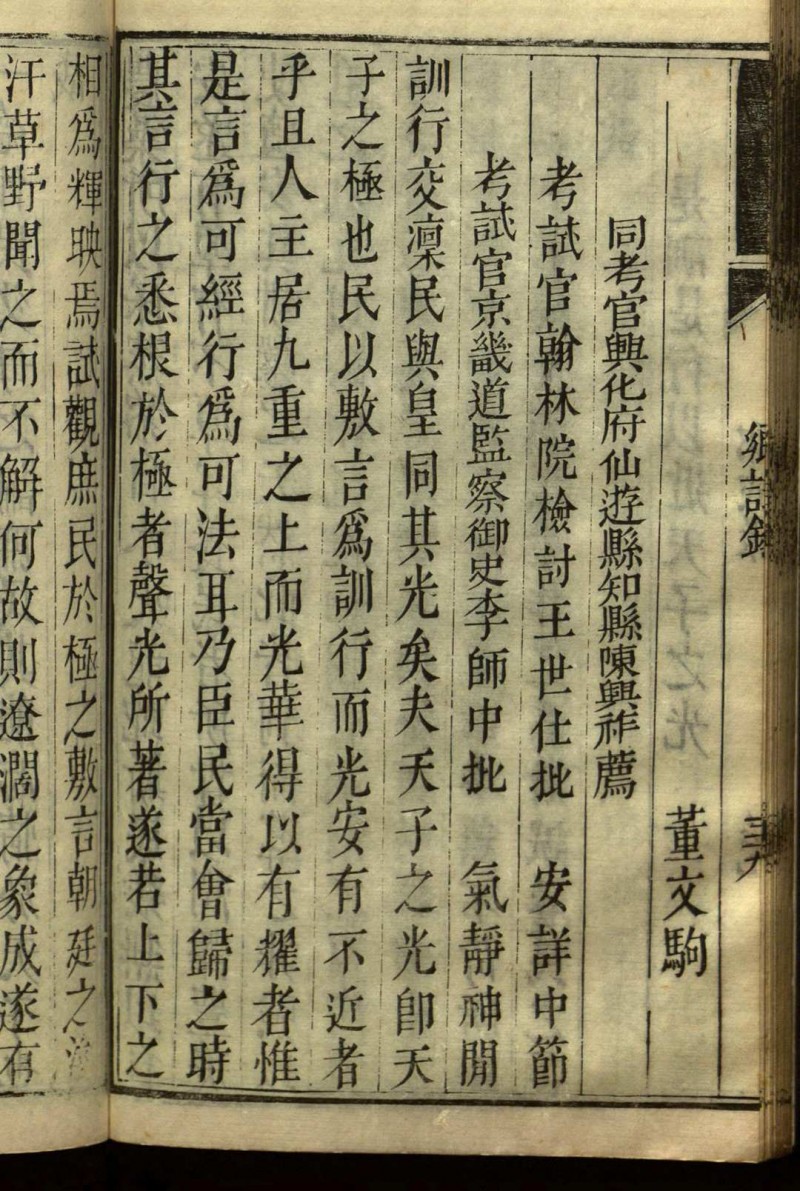 鄉試錄
董文駒
同考官興化府仙遊縣知縣陳興祚薦
考試官翰林院檢討王世仕批 安詳中節
考試官京畿道監察御史李師中批 氣靜神閒
訓行交凜民與皇同其光矣夫天子之光即天
子之極也民以敷言爲訓行而光安有不近者
乎且人主居九重之上而光華得以有耀者惟
是言爲可經行爲可法耳乃臣民當會歸之時
其言行之悉根於極者聲光所著遂若上下之
相爲輝映焉試觀庶民於極之敷言朝廷之
汗草野聞之而不解何故則遼濶之象成遂有